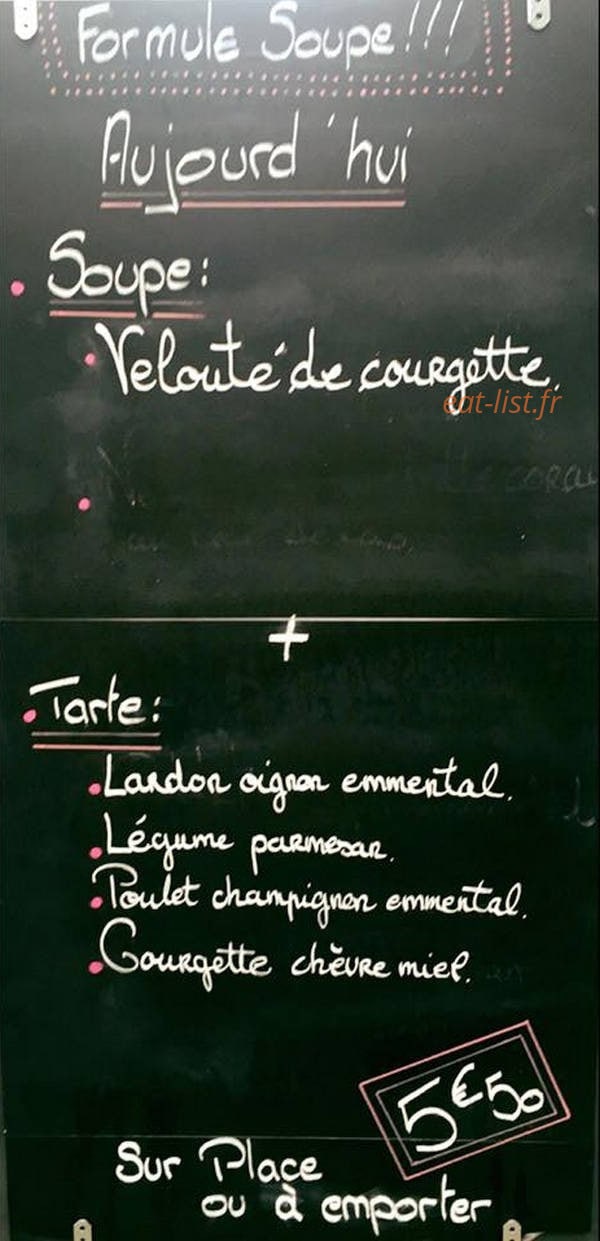 Formule Soupe!!!
Aujourd'hui
Soupe:
Velouté de courgette.
eat-list.fr
+
Tarte:
Lardon oignon emmental.
Légume parmesan.
Poulet champignon emmental.
Courgette chèvre miel.
5€50
Sur Place
ou à emporter